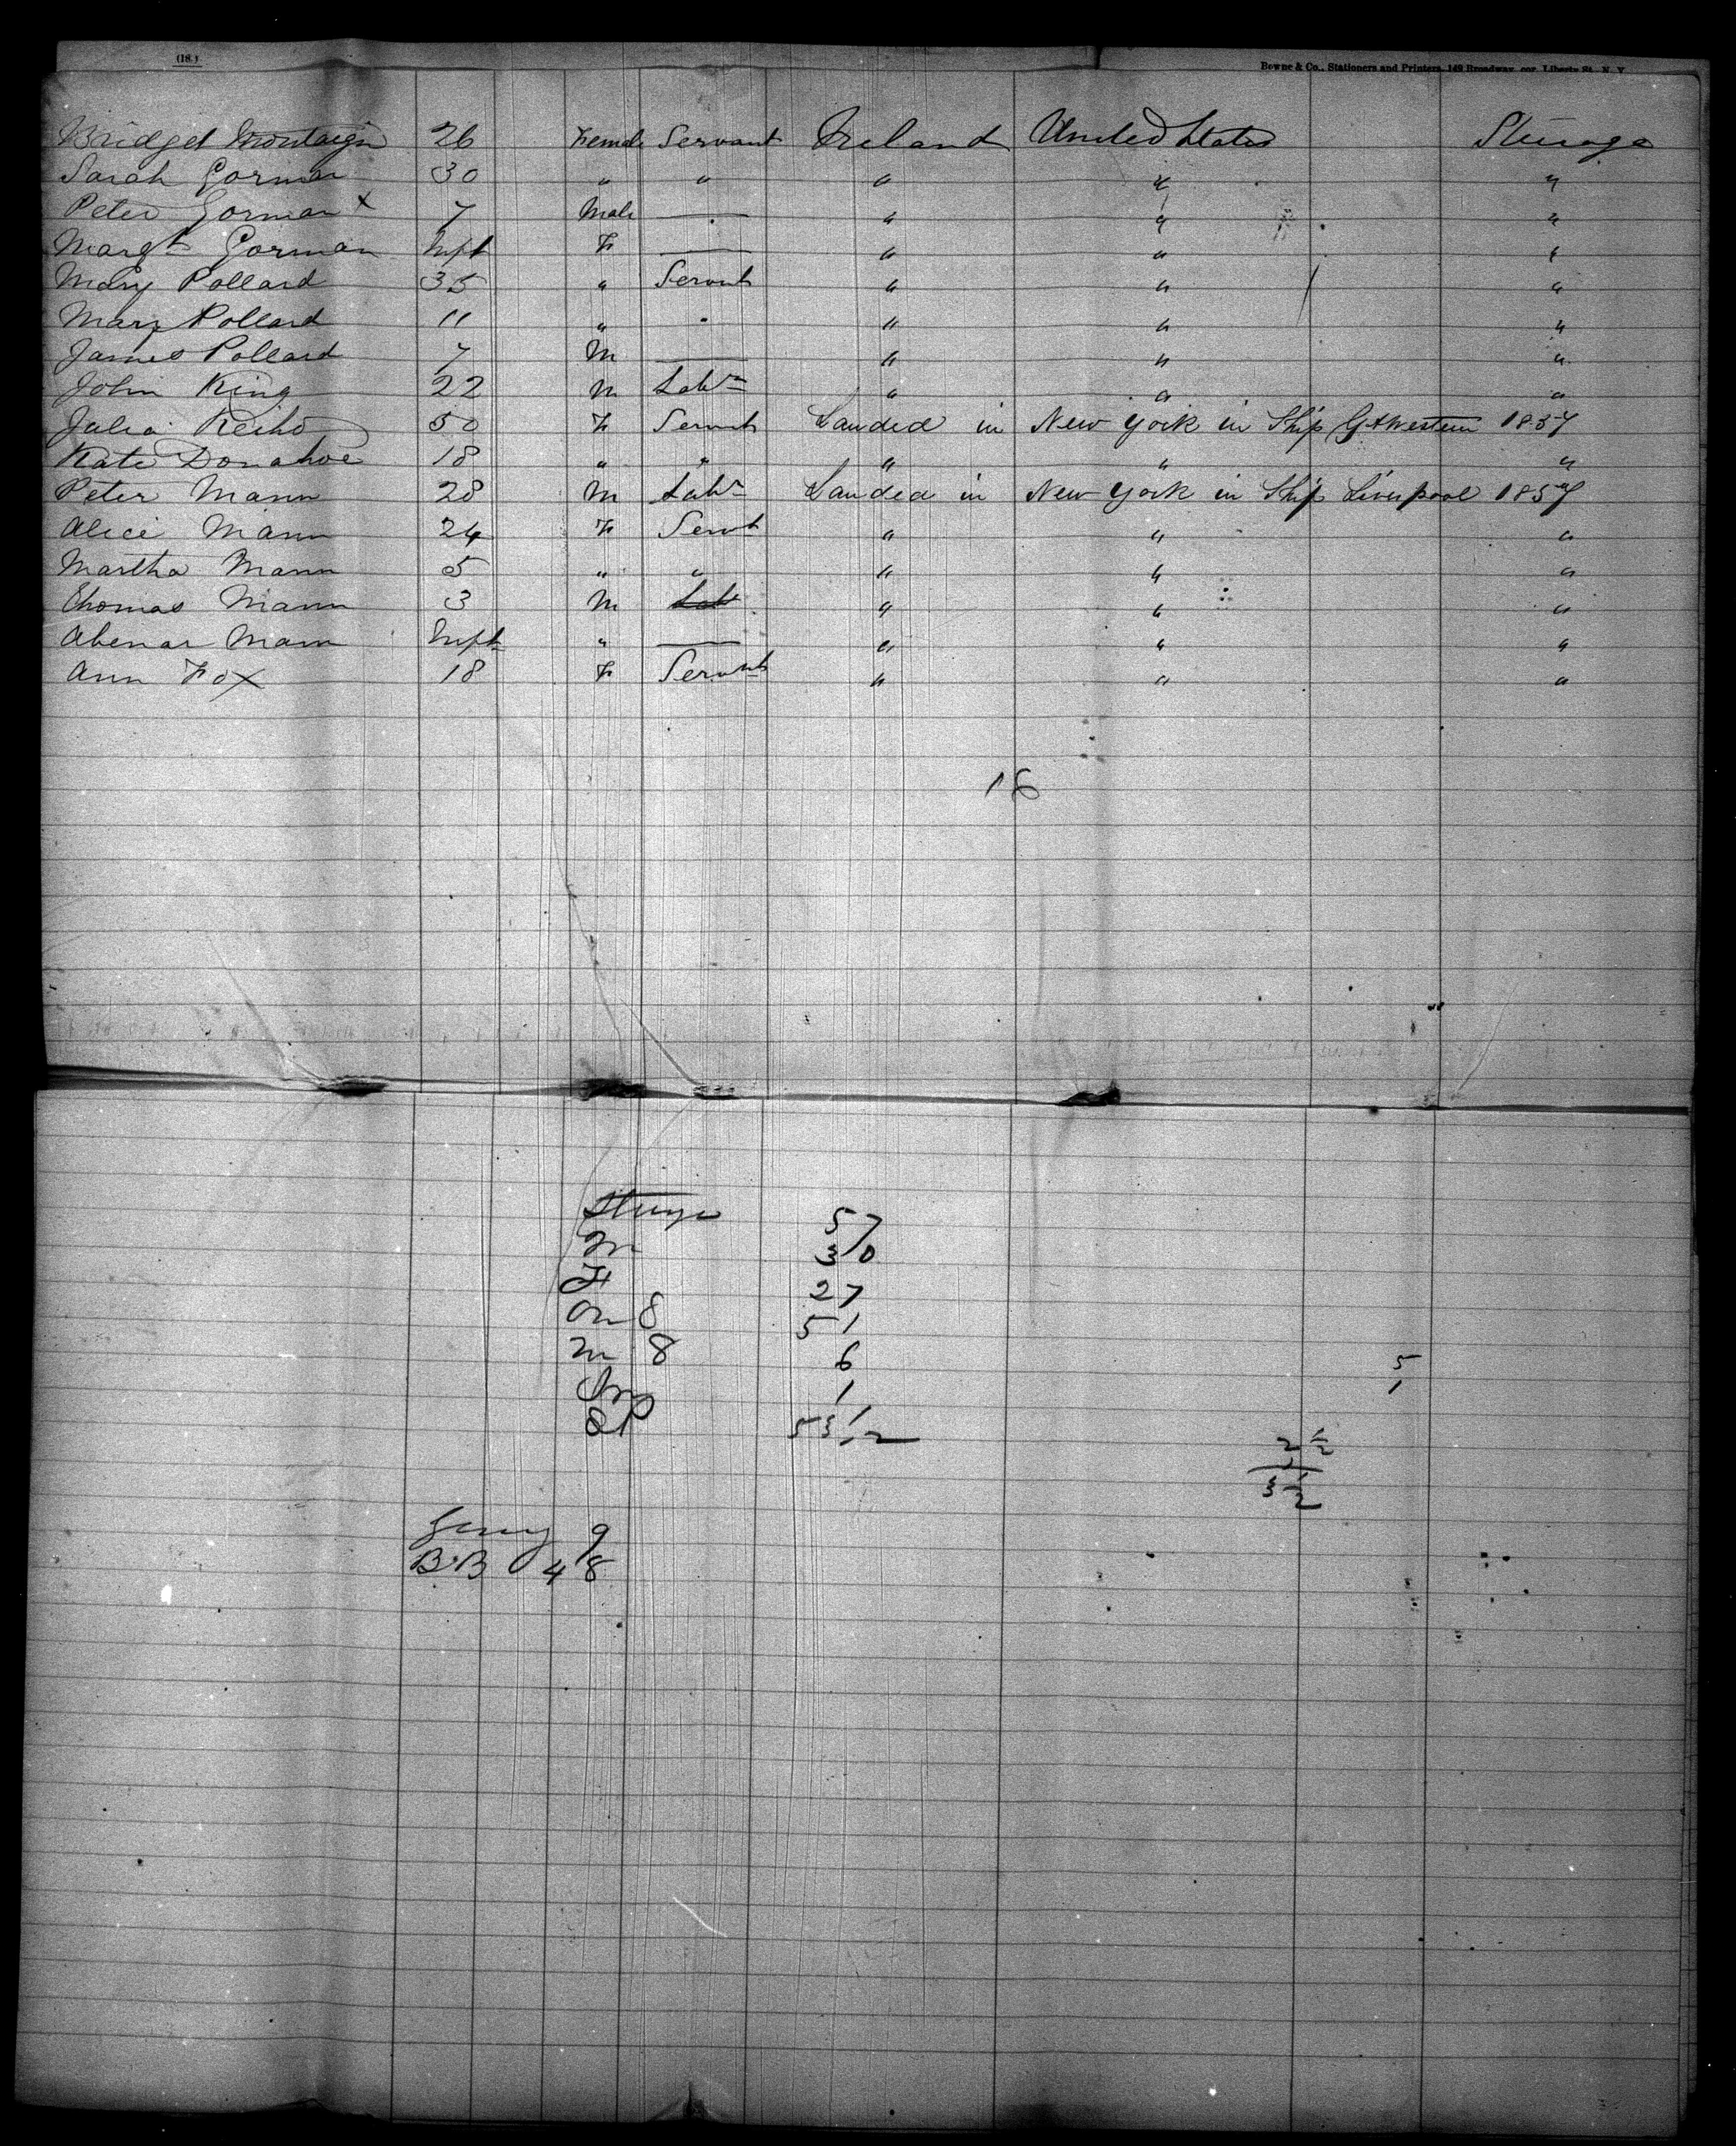 (18.)
Bowne & Co., Stationers and Printers, 149 Broadway, cor. Liberty St., N. Y.
Bridget 26 Female Servant Ireland United States Steerage
Sarah Gorman 30 " " " " "
Peter Gorman x 7 Male — " " "
Margt Gorman Inft F — " " "
Mary Pollard 35 " Servnt " " "
Mary Pollard 11 " " " " "
James Pollard 7 M — " " "
John King 22 M Labr " " "
Julia 50 F Servnt Landed in New York in Ship Gt Western 1857
Kate Donahoe 18 " " " " "
Peter Mann 28 M Labr Landed in New York in Ship Liverpool 1857
Alice Mann 24 F Servt " " "
Martha Mann 5 " " " " "
Thomas Mann 3 M Lab " " "
Abenar Mann Inft " — " " "
Ann Fox 18 F Servnt " " "
16
Steerge 57
M 30
F 27
On 8 51
M 8 6 5
Inf 1 1
53 1/2
2 1/2
3 1/2
Germy 9
B.B 48